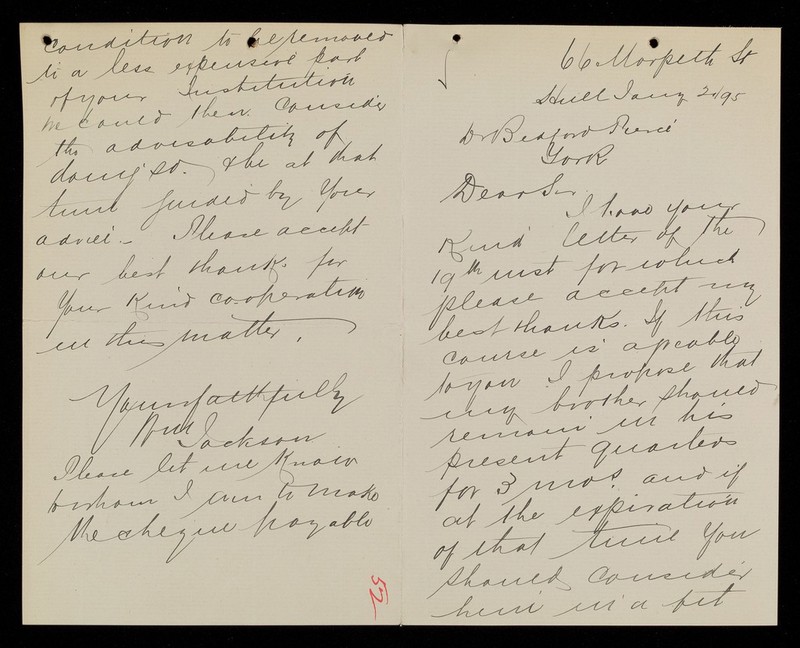 66 Morpeth St
Hull Jany 21/95
Dr Bedford Pierce
York
Dear Sir
I have your
kind letter of the
19th inst for which
please accept my
best thanks. If this
course is agreable
to you I propose that
my brother should
remain in his
present quarters
for 3 mos. and if
at the expiration
of that time you
should consider
him in a fit
condition to be removed
to a less expensive part
of your Institution
we could then consider
the advisability of
doing so. & be at that
time guided by your
advice. - Please accept
our best thanks for
your kind cooperation
in this matter.
Yours faithfully
Wm Jackson
Please let me know
to whom I am to make
the cheque payable